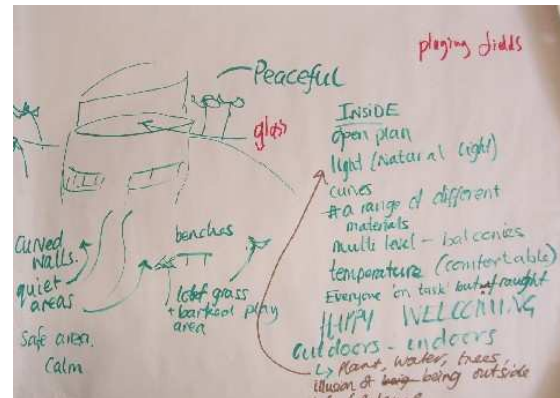 playing fields
Peaceful
glass
INSIDE
open plan
light (Natural light)
curves
# a range of different
materials
multi level - balconies
temperature (comfortable)
Everyone 'on task' but fraught
HAPPY WELCOMING
outdoors - indoors
↳ Plant, water, trees,
illusion of being outside
curved
walls.
quiet
areas
Safe area.
Calm
benches
lots of grass
+ barked play
area